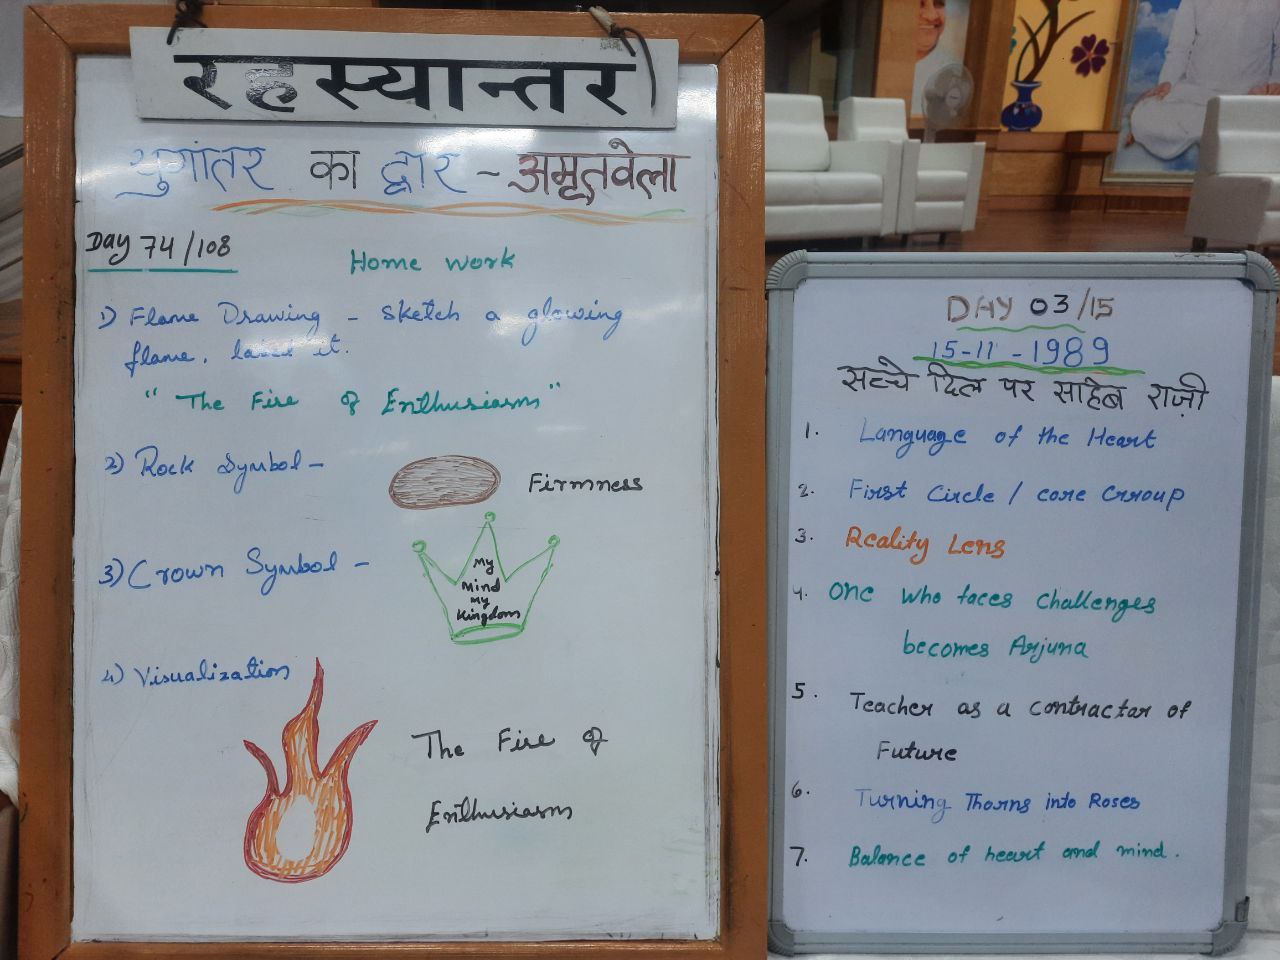 रहस्यान्तर
युगांतर का द्वार - अमृतवेला
Day 74/108
Home work
1) Flame Drawing - sketch a glowing
flame, label it.
" The Fire of Enthusiasm"
2) Rock Symbol -
Firmness
3) Crown Symbol -
My
Mind
My
Kingdom
4) Visualization
The Fire of
Enthusiasm
DAY 03/15
15-11-1989
सच्चे दिल पर साहेब राज़ी
1. Language of the Heart
2. First Circle / core Group
3. Reality Lens
4. One who faces challenges
becomes Arjuna
5. Teacher as a contractar of
Future
6. Turning Thorns into Roses
7. Balance of heart and mind.